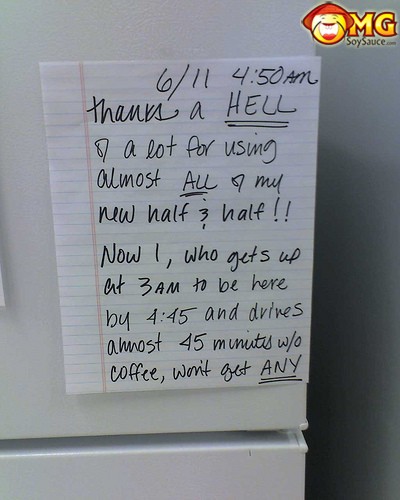 OMG
SoySauce.com
6/11 4:50AM
thanks a HELL
of a lot for using
almost ALL of my
new half & half!!
Now I, who gets up
at 3AM to be here
by 4:45 and drives
almost 45 minutes w/o
coffee, won't get ANY